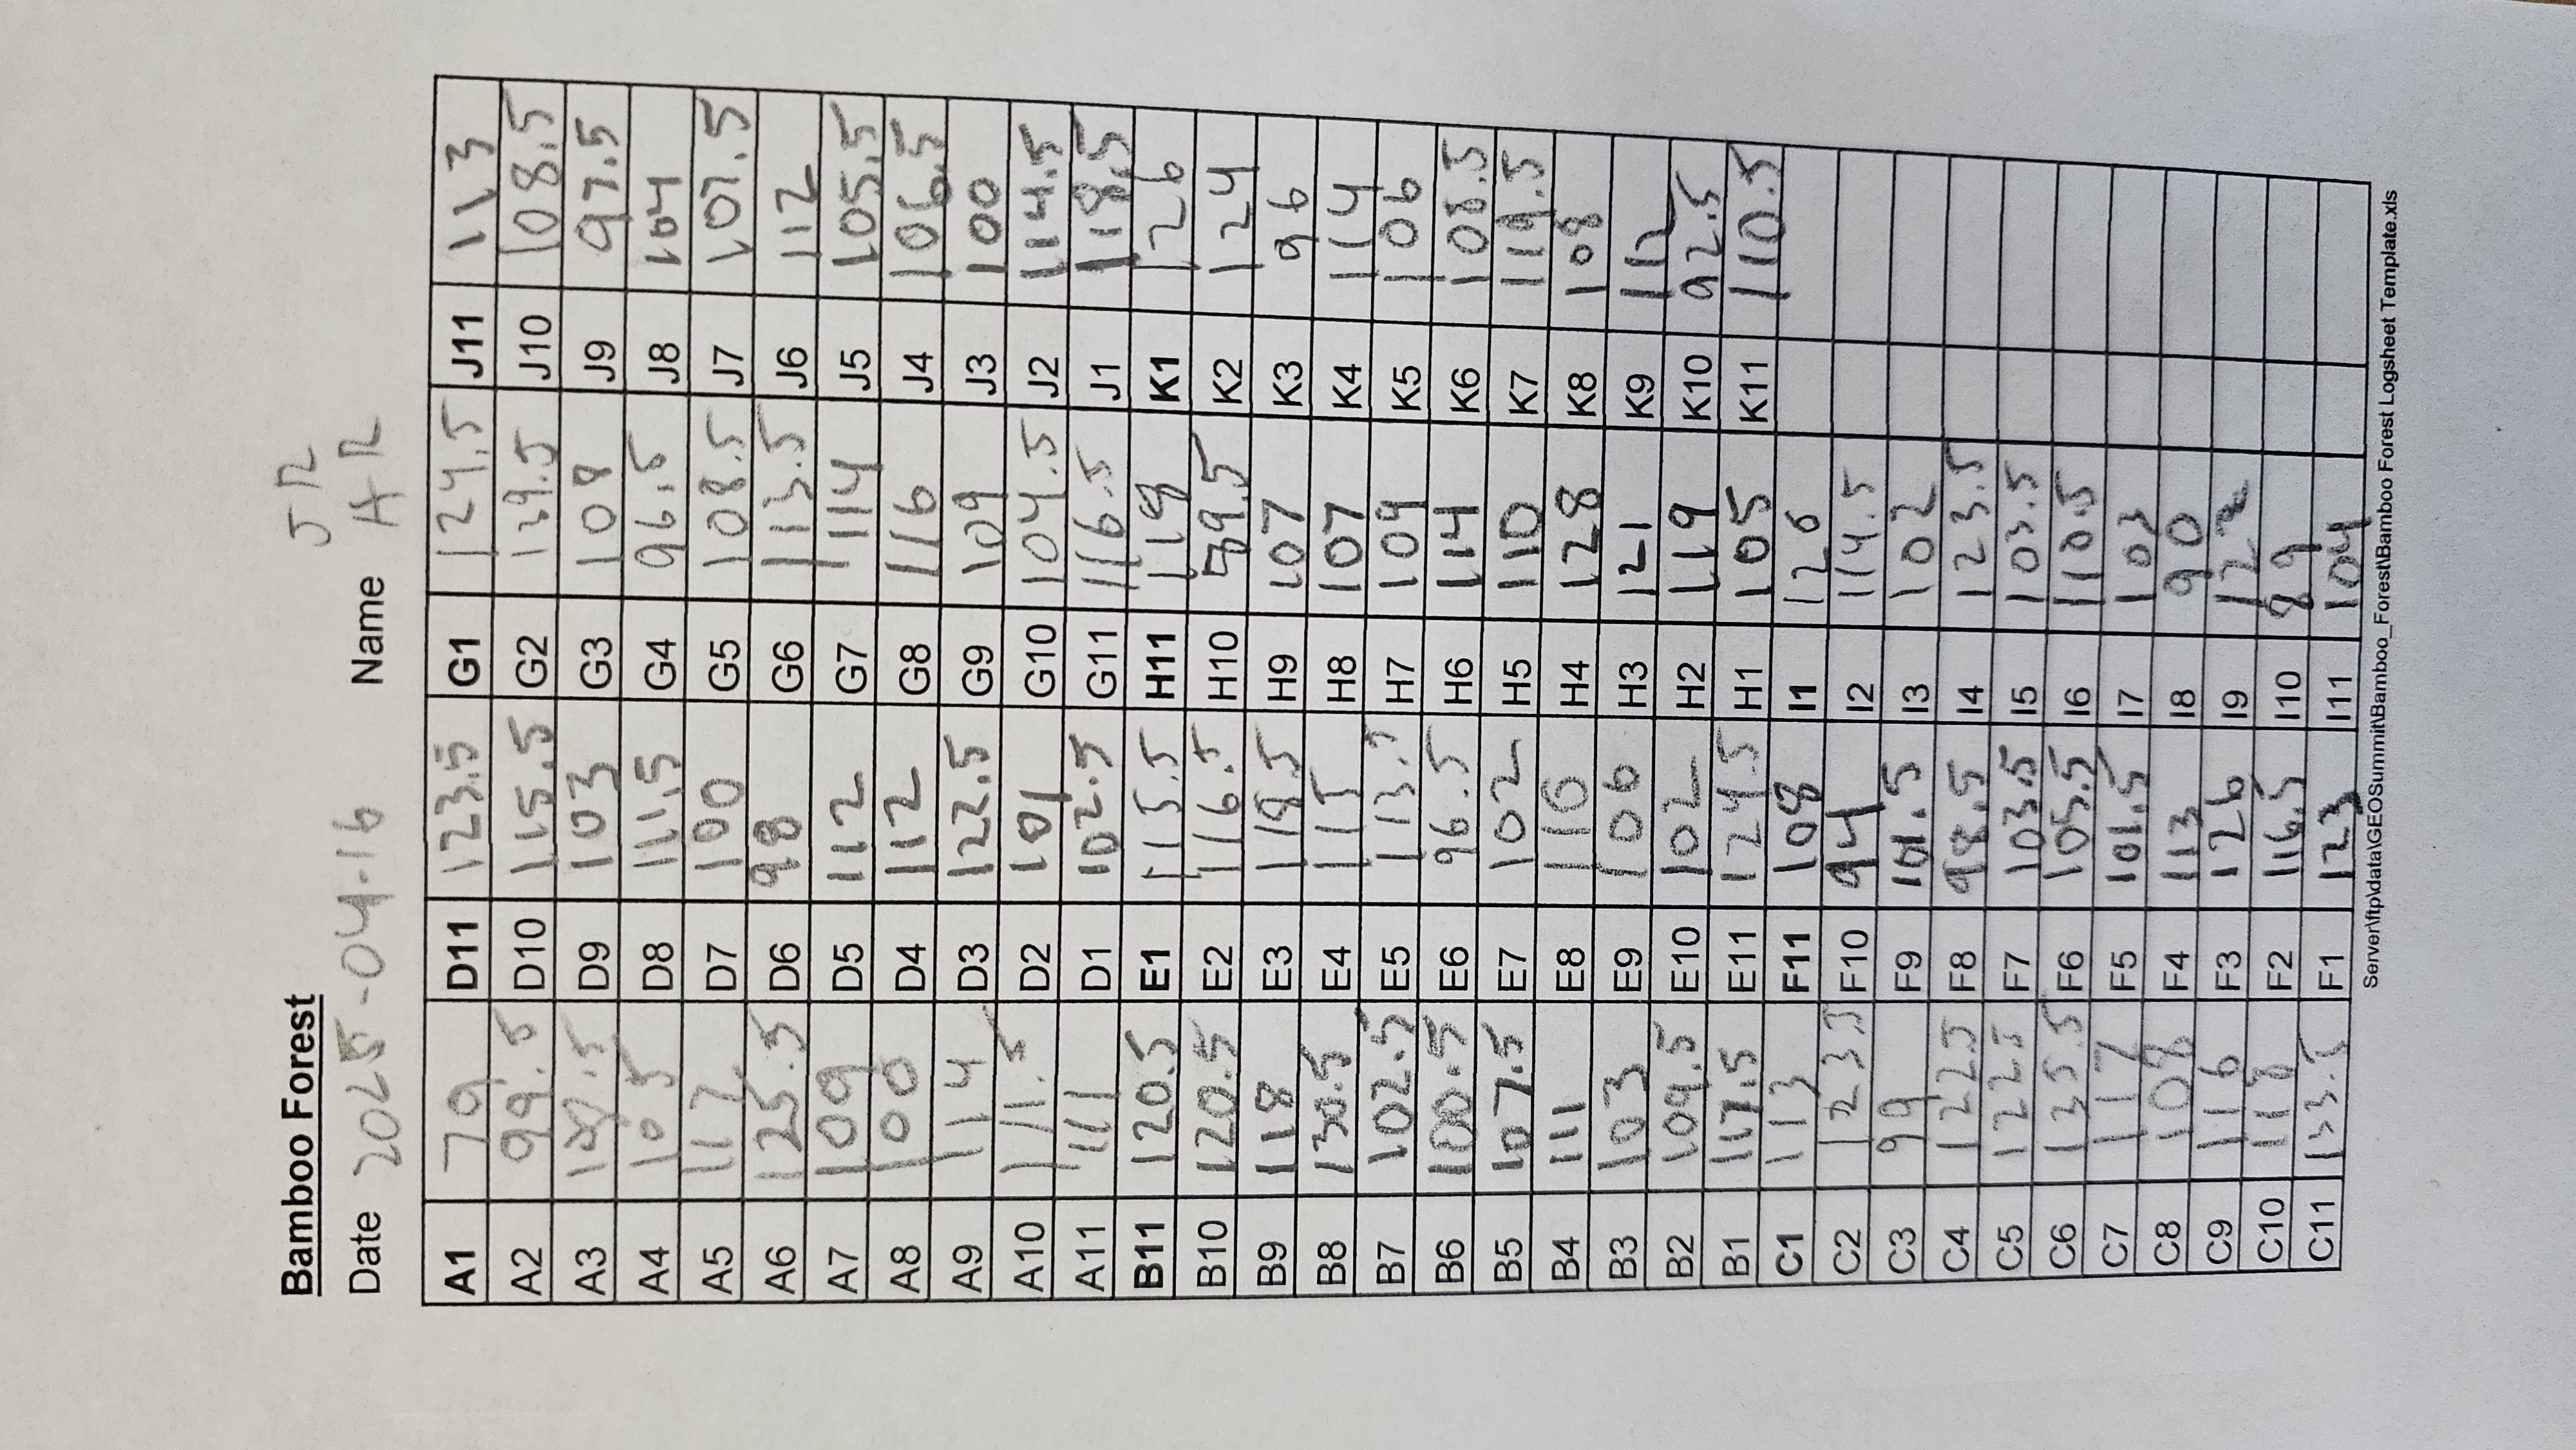 Bamboo Forest
Date 2025-04-16 Name JR AR
A1 79 D11 123.5 G1 124.5 J11 113
A2 99.5 D10 115.5 G2 129.5 J10 108.5
A3 D9 103 G3 108 J9 97.5
A4 103 D8 111.5 G4 96.5 J8 104
A5 117 D7 100 G5 108.5 J7 107.5
A6 125.5 D6 98 G6 113.5 J6 112
A7 109 D5 112 G7 114 J5 105.5
A8 100 D4 112 G8 116 J4 106.5
A9 114 D3 122.5 G9 109 J3 100
A10 111.5 D2 101 G10 104.5 J2 114.5
A11 111 D1 102.5 G11 116.5 J1 118.5
B11 120.5 E1 115.5 H11 118 K1 126
B10 120.5 E2 116.5 H10 89.5 K2 124
B9 118 E3 118.5 H9 107 K3 96
B8 130.5 E4 115 H8 107 K4 114
B7 102.5 E5 113.5 H7 109 K5 106
B6 100.5 E6 96.5 H6 114 K6 108.5
B5 107.5 E7 102 H5 110 K7 119.5
B4 111 E8 116 H4 128 K8 108
B3 103 E9 106 H3 121 K9 112
B2 109.5 E10 102 H2 119 K10 92.5
B1 117.5 E11 124.5 H1 105 K11 110.5
C1 113 F11 108 I1 126
C2 123.5 F10 94 I2 114.5
C3 99 F9 101.5 I3 102
C4 122.5 F8 98.5 I4 123.5
C5 122.5 F7 103.5 I5 103.5
C6 135.5 F6 105.5 I6 110.5
C7 117 F5 101.5 I7 103
C8 108 F4 113 I8 90
C9 116 F3 126 I9 122
C10 118 F2 116.5 I10 89
C11 133.5 F1 123 I11 104
Server\ftp\data\GEOSummit\Bamboo_Forest\Bamboo Forest Logsheet Template.xls